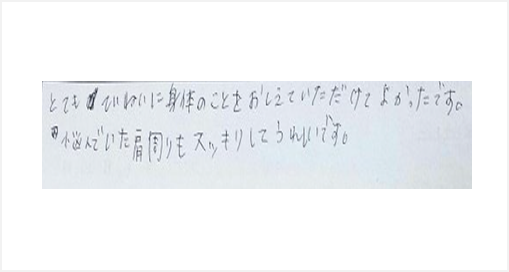 とても ていねいに身体のことをおしえていただけてよかったです。
悩んでいた肩周りもスッキリしてうれしいです。